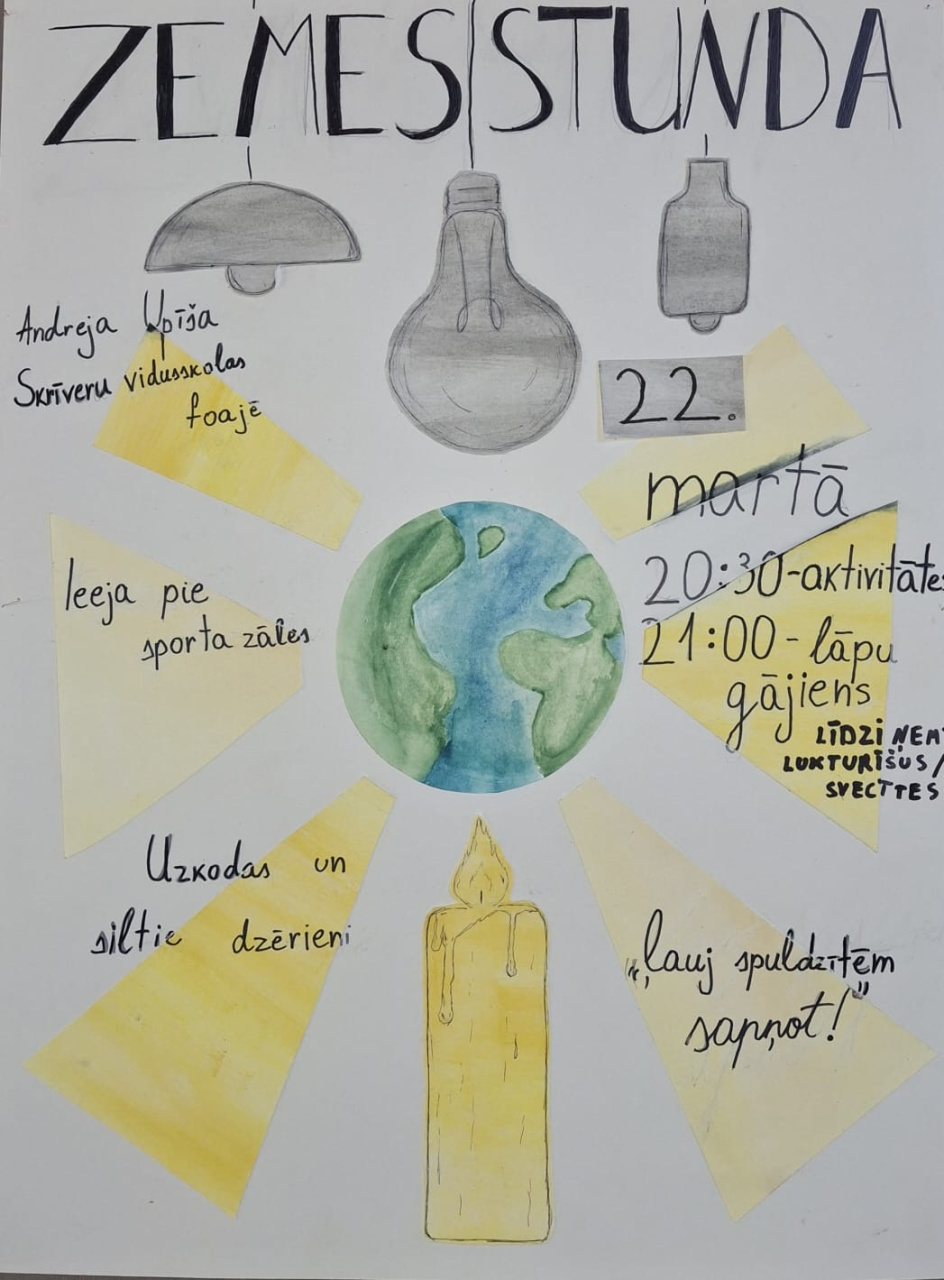 ZEMES STUNDA
Andreja Upīša
Skrīveru vidusskolas
foajē
22.
martā
Ieeja pie
sporta zāles
20:30-aktivitātes
21:00 - lāpu
gājiens
LĪDZI ŅEMT
LUKTURĪŠUS/
SVECĪTES
Uzkodas un
siltie dzērieni
"ļauj spuldzītēm
sapņot!"